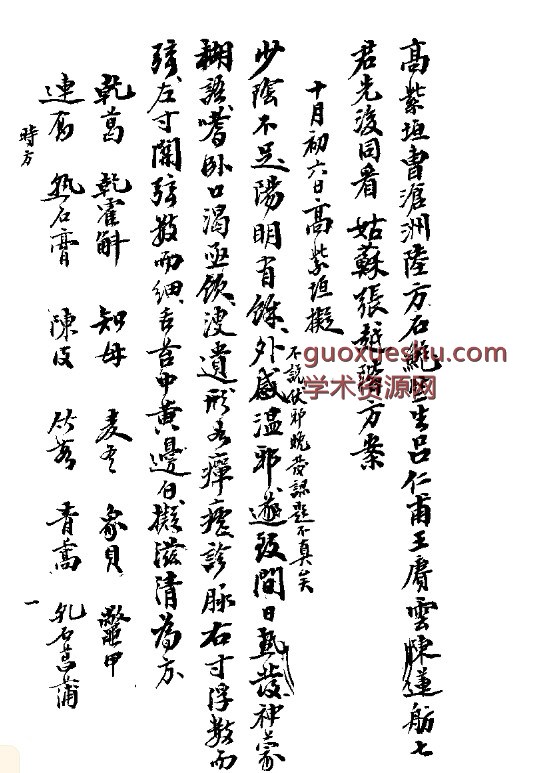 高紫垣曹滄洲陸方石鮑醫生呂仁甫王賡雲陳蓮舫七
君先後同看姑蘇張越階方案
十月初六日高紫垣擬
不說伏邪晚發認題不真矣
少陰不足陽明有餘外感溫邪遂致間日熱發神蒙
糊語嗜臥口渴亟飲溲遺形為瘅瘧診脉右寸浮數而
弦左寸關弦數而細舌苔中黃邊白擬滋清為方
乾葛 乾霍斛 知母 麦冬 象貝 鼈甲
連翹 熟石膏 陳皮 竹茹 青蒿 九石菖蒲
時方
一
guoxueshu.com
学术资源网